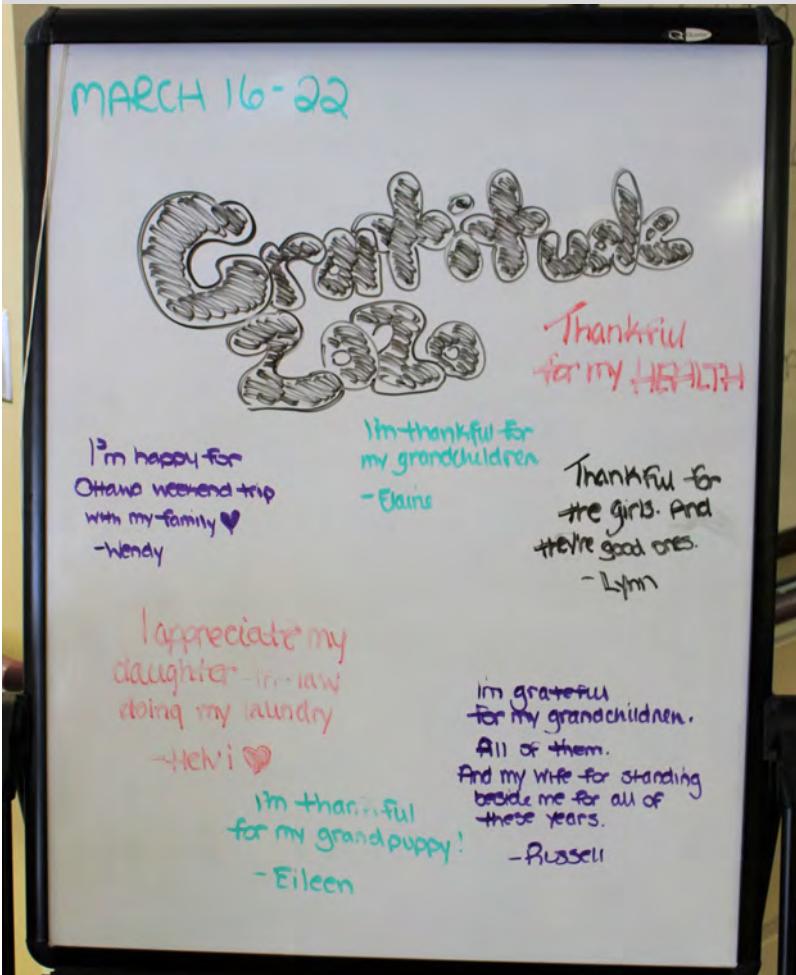 MARCH 16-22
Gratitude
2020
Thankful
for my HEALTH
I'm thankful for
my grandchildren
-Elaine
I'm happy for
Ottawa weekend trip
with my family ♥
-Wendy
Thankful for
the girls. And
they're good ones.
- Lynn
I appreciate my
daughter-in-law
doing my laundry
-Helvi ♥
I'm grateful
for my grandchildren.
All of them.
And my wife for standing
beside me for all of
these years.
-Russell
I'm thankful
for my grandpuppy!
- Eileen